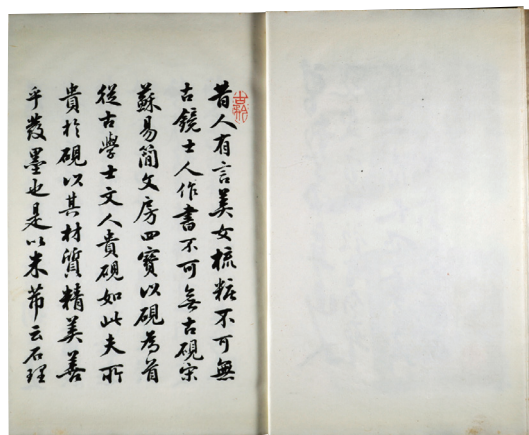 昔人有言美女梳粧不可無
古鏡士人作書不可無古硯宋
蘇易簡文房四寶以硯為首
從古學士文人貴硯如此夫所
貴於硯以其材質精美善
乎發墨也是以米芾云石理